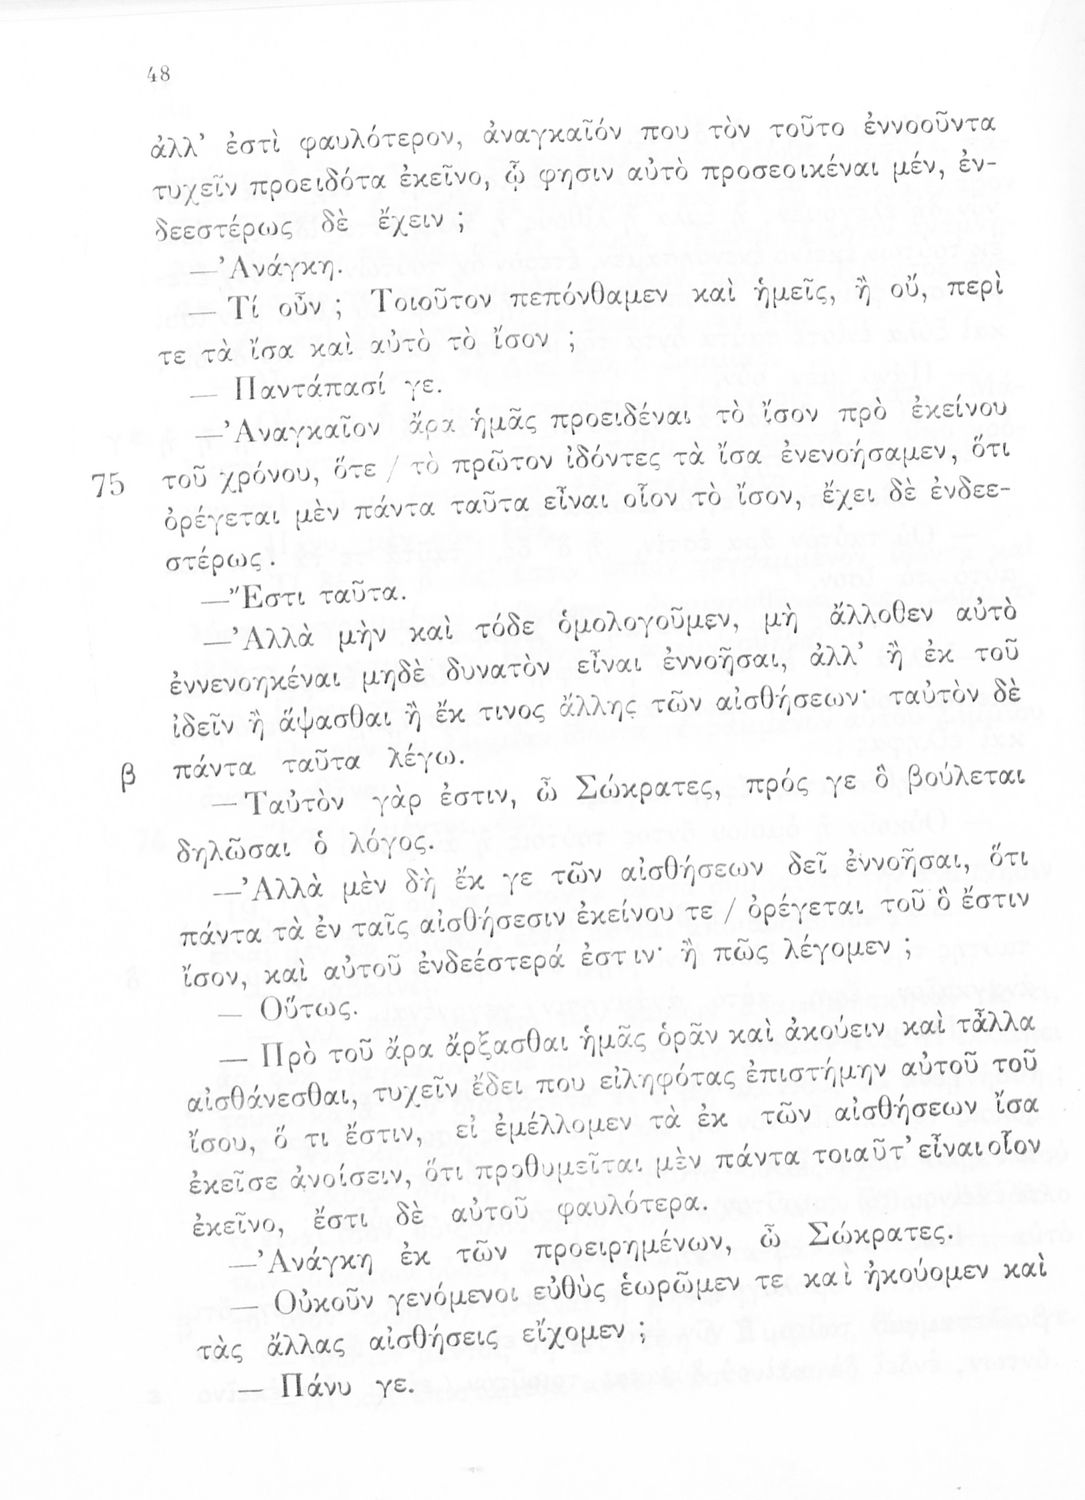 48
ἀλλ' ἐστὶ φαυλότερον, ἀναγκαῖόν που τὸν τοῦτο ἐννοοῦντα
τυχεῖν προειδότα ἐκεῖνο, ᾧ φησιν αὐτὸ προσεοικέναι μέν, ἐν-
δεεστέρως δὲ ἔχειν ;
—'Ανάγκη.
— Τί οὖν ; Τοιοῦτον πεπόνθαμεν καὶ ἡμεῖς, ἢ οὔ, περὶ
τε τὰ ἴσα καὶ αὐτὸ τὸ ἴσον ;
— Παντάπασί γε.
—'Αναγκαῖον ἄρα ἡμᾶς προειδέναι τὸ ἴσον πρὸ ἐκείνου
75 τοῦ χρόνου, ὅτε / τὸ πρῶτον ἰδόντες τὰ ἴσα ἐνενοήσαμεν, ὅτι
ὀρέγεται μὲν πάντα ταῦτα εἶναι οἷον τὸ ἴσον, ἔχει δὲ ἐνδεε-
στέρως.
—"Εστι ταῦτα.
—'Αλλὰ μὴν καὶ τόδε ὁμολογοῦμεν, μὴ ἄλλοθεν αὐτὸ
ἐννενοηκέναι μηδὲ δυνατὸν εἶναι ἐννοῆσαι, ἀλλ' ἢ ἐκ τοῦ
ἰδεῖν ἢ ἅψασθαι ἢ ἔκ τινος ἄλλης τῶν αἰσθήσεων· ταὐτὸν δὲ
β πάντα ταῦτα λέγω.
— Ταὐτὸν γὰρ ἐστιν, ὦ Σώκρατες, πρός γε ὃ βούλεται
δηλῶσαι ὁ λόγος.
—'Αλλὰ μὲν δὴ ἔκ γε τῶν αἰσθήσεων δεῖ ἐννοῆσαι, ὅτι
πάντα τὰ ἐν ταῖς αἰσθήσεσιν ἐκείνου τε / ὀρέγεται τοῦ ὃ ἔστιν
ἴσον, καὶ αὐτοῦ ἐνδεέστερά ἐστιν· ἢ πῶς λέγομεν ;
— Οὕτως.
— Πρὸ τοῦ ἄρα ἄρξασθαι ἡμᾶς ὁρᾶν καὶ ἀκούειν καὶ τἆλλα
αἰσθάνεσθαι, τυχεῖν ἔδει που εἰληφότας ἐπιστήμην αὐτοῦ τοῦ
ἴσου, ὅ τι ἔστιν, εἰ ἐμέλλομεν τὰ ἐκ τῶν αἰσθήσεων ἴσα
ἐκεῖσε ἀνοίσειν, ὅτι προθυμεῖται μὲν πάντα τοιαῦτ' εἶναι οἷον
ἐκεῖνο, ἔστι δὲ αὐτοῦ φαυλότερα.
—'Ανάγκη ἐκ τῶν προειρημένων, ὦ Σώκρατες.
— Οὐκοῦν γενόμενοι εὐθὺς ἑωρῶμεν τε καὶ ἠκούομεν καὶ
τὰς ἄλλας αἰσθήσεις εἴχομεν ;
— Πάνυ γε.